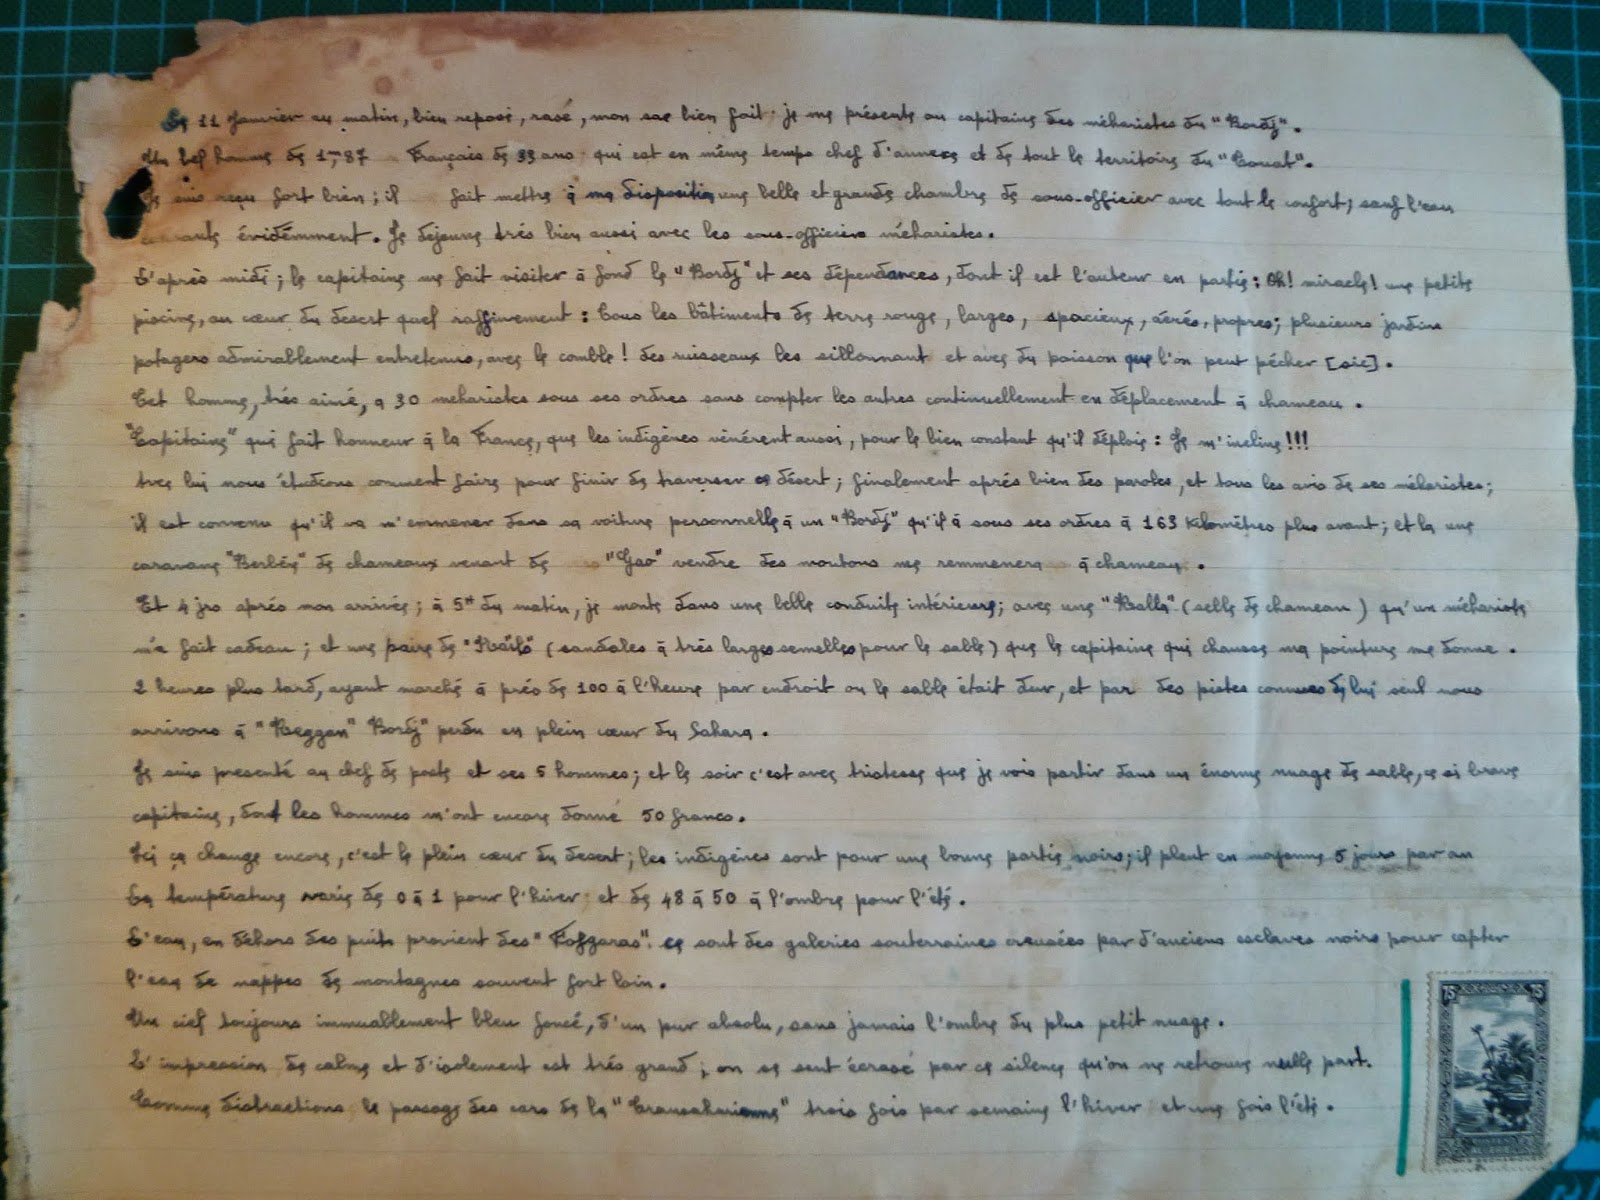 Le 11 Janvier au matin, bien reposé, rasé, mon sac bien fait je me présente au capitaine des méharistes du "Bordj".
Un bel homme de 1m87 Français de 33 ans qui est en même temps chef d'annexe et de tout le territoire du "Touat".
Je suis reçu fort bien; il fait mettre à ma disposition une belle et grande chambre de sous-officier avec tout le confort; sauf l'eau
courante évidemment. Je déjeune trés bien aussi avec les sous-officiers méharistes.
L'après midi; le capitaine me fait visiter à fond le "Bordj" et ses dépendances, dont il est l'auteur en partie: Oh! miracle! une petite
piscine, au cœur du desert quel raffinement: Tous les bâtiments de terre rouge, larges, spacieux, aérés, propres; plusieurs jardins
potagers admirablement entretenus, avec le comble! des ruisseaux les sillonnant et avec du poisson que l'on peut pécher [sic].
Cet homme, trés aimé, a 30 meharistes sous ses ordres sans compter les autres continuellement en déplacement à chameau.
"Capitaine" qui fait honneur à la France, que les indigènes vénérent aussi, pour le bien constant qu'il déploie: Je m'incline!!!
Avec lui nous étudions comment faire pour finir de traverser ce désert; finalement aprés bien des paroles, et tous les avis de ses méharistes;
il est convenu qu'il va m'emmener dans sa voiture personnelle à un "Bordj" qu'il à sous ses ordres à 163 kilomètres plus avant; et la une
caravane "Berbére" de chameaux venant de "Gao" vendre des moutons me remmenera à chameau.
Et 4 jrs aprés mon arrivée; à 5H du matin, je monte dans une belle conduite intérieure; avec une "Ralla" (selle de chameau) qu'un méhariste
m'a fait cadeau; et une paire de "Naïls" (sandales à trés larges semelles pour le sable) que le capitaine qui chausse ma pointure me donne.
2 heures plus tard, ayant marché à prés de 100 à l'heure par endroit ou le sable était dur, et par des pistes connues de lui seul nous
arrivons à "Reggan" Bordj" perdu en plein cœur du Sahara.
Je suis presenté au chef de poste et ses 5 hommes; et le soir c'est avec tristesse que je vois partir dans un énorme nuage de sable, ce si brave
capitaine, dont les hommes m'ont encore donné 50 francs.
Ici ça change encore, c'est le plein cœur du desert; les indigénes sont pour une bonne partie noirs; il pleut en moyenne 5 jours par an
La température varie de 0 à 1 pour l'hiver et de 48 à 50 à l'ombre pour l'été.
L'eau, en déhors des puits provient des "Foggaras" ce sont des galeries souterraines creusées par d'anciens esclaves noirs pour capter
l'eau de nappes de montagnes souvent fort loin.
Un ciel toujours immuablement bleu foncé, d'un pur absolu, sans jamais l'ombre du plus petit nuage.
L'impression de calme et d'isolement est trés grand; on se sent écrasé par ce silence qu'on ne retrouve nulle part.
Comme distractions le passage des cars de la "Transaharienne" trois fois par semaine l'hiver et une fois l'été.
75 75
ALGERIE